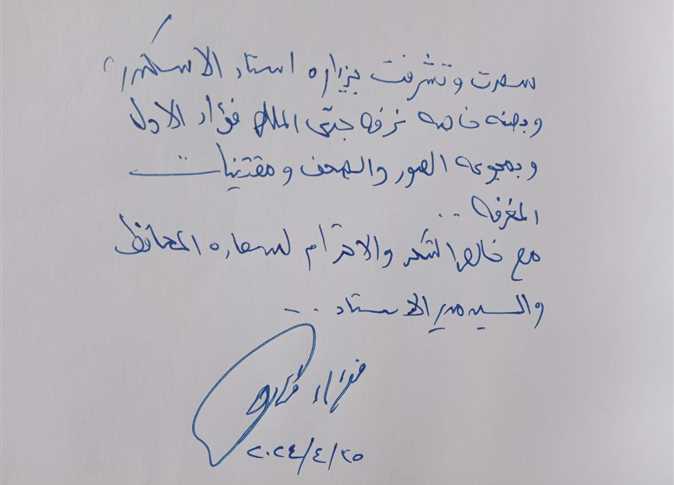 سعدت وتشرفت بزياره استاد الاسكندريه
وبصفه خاصه غرفه جدى الملك فؤاد الاول
وبمجموعه الصور والصحف ومقتنيات
الغرفه . .
مع خالص الشكر والاحترام لسعاده المحافظ
والسيد مدير الاستاد . . .
فؤاد فاروق
٢٠٢٤/٤/٢٥